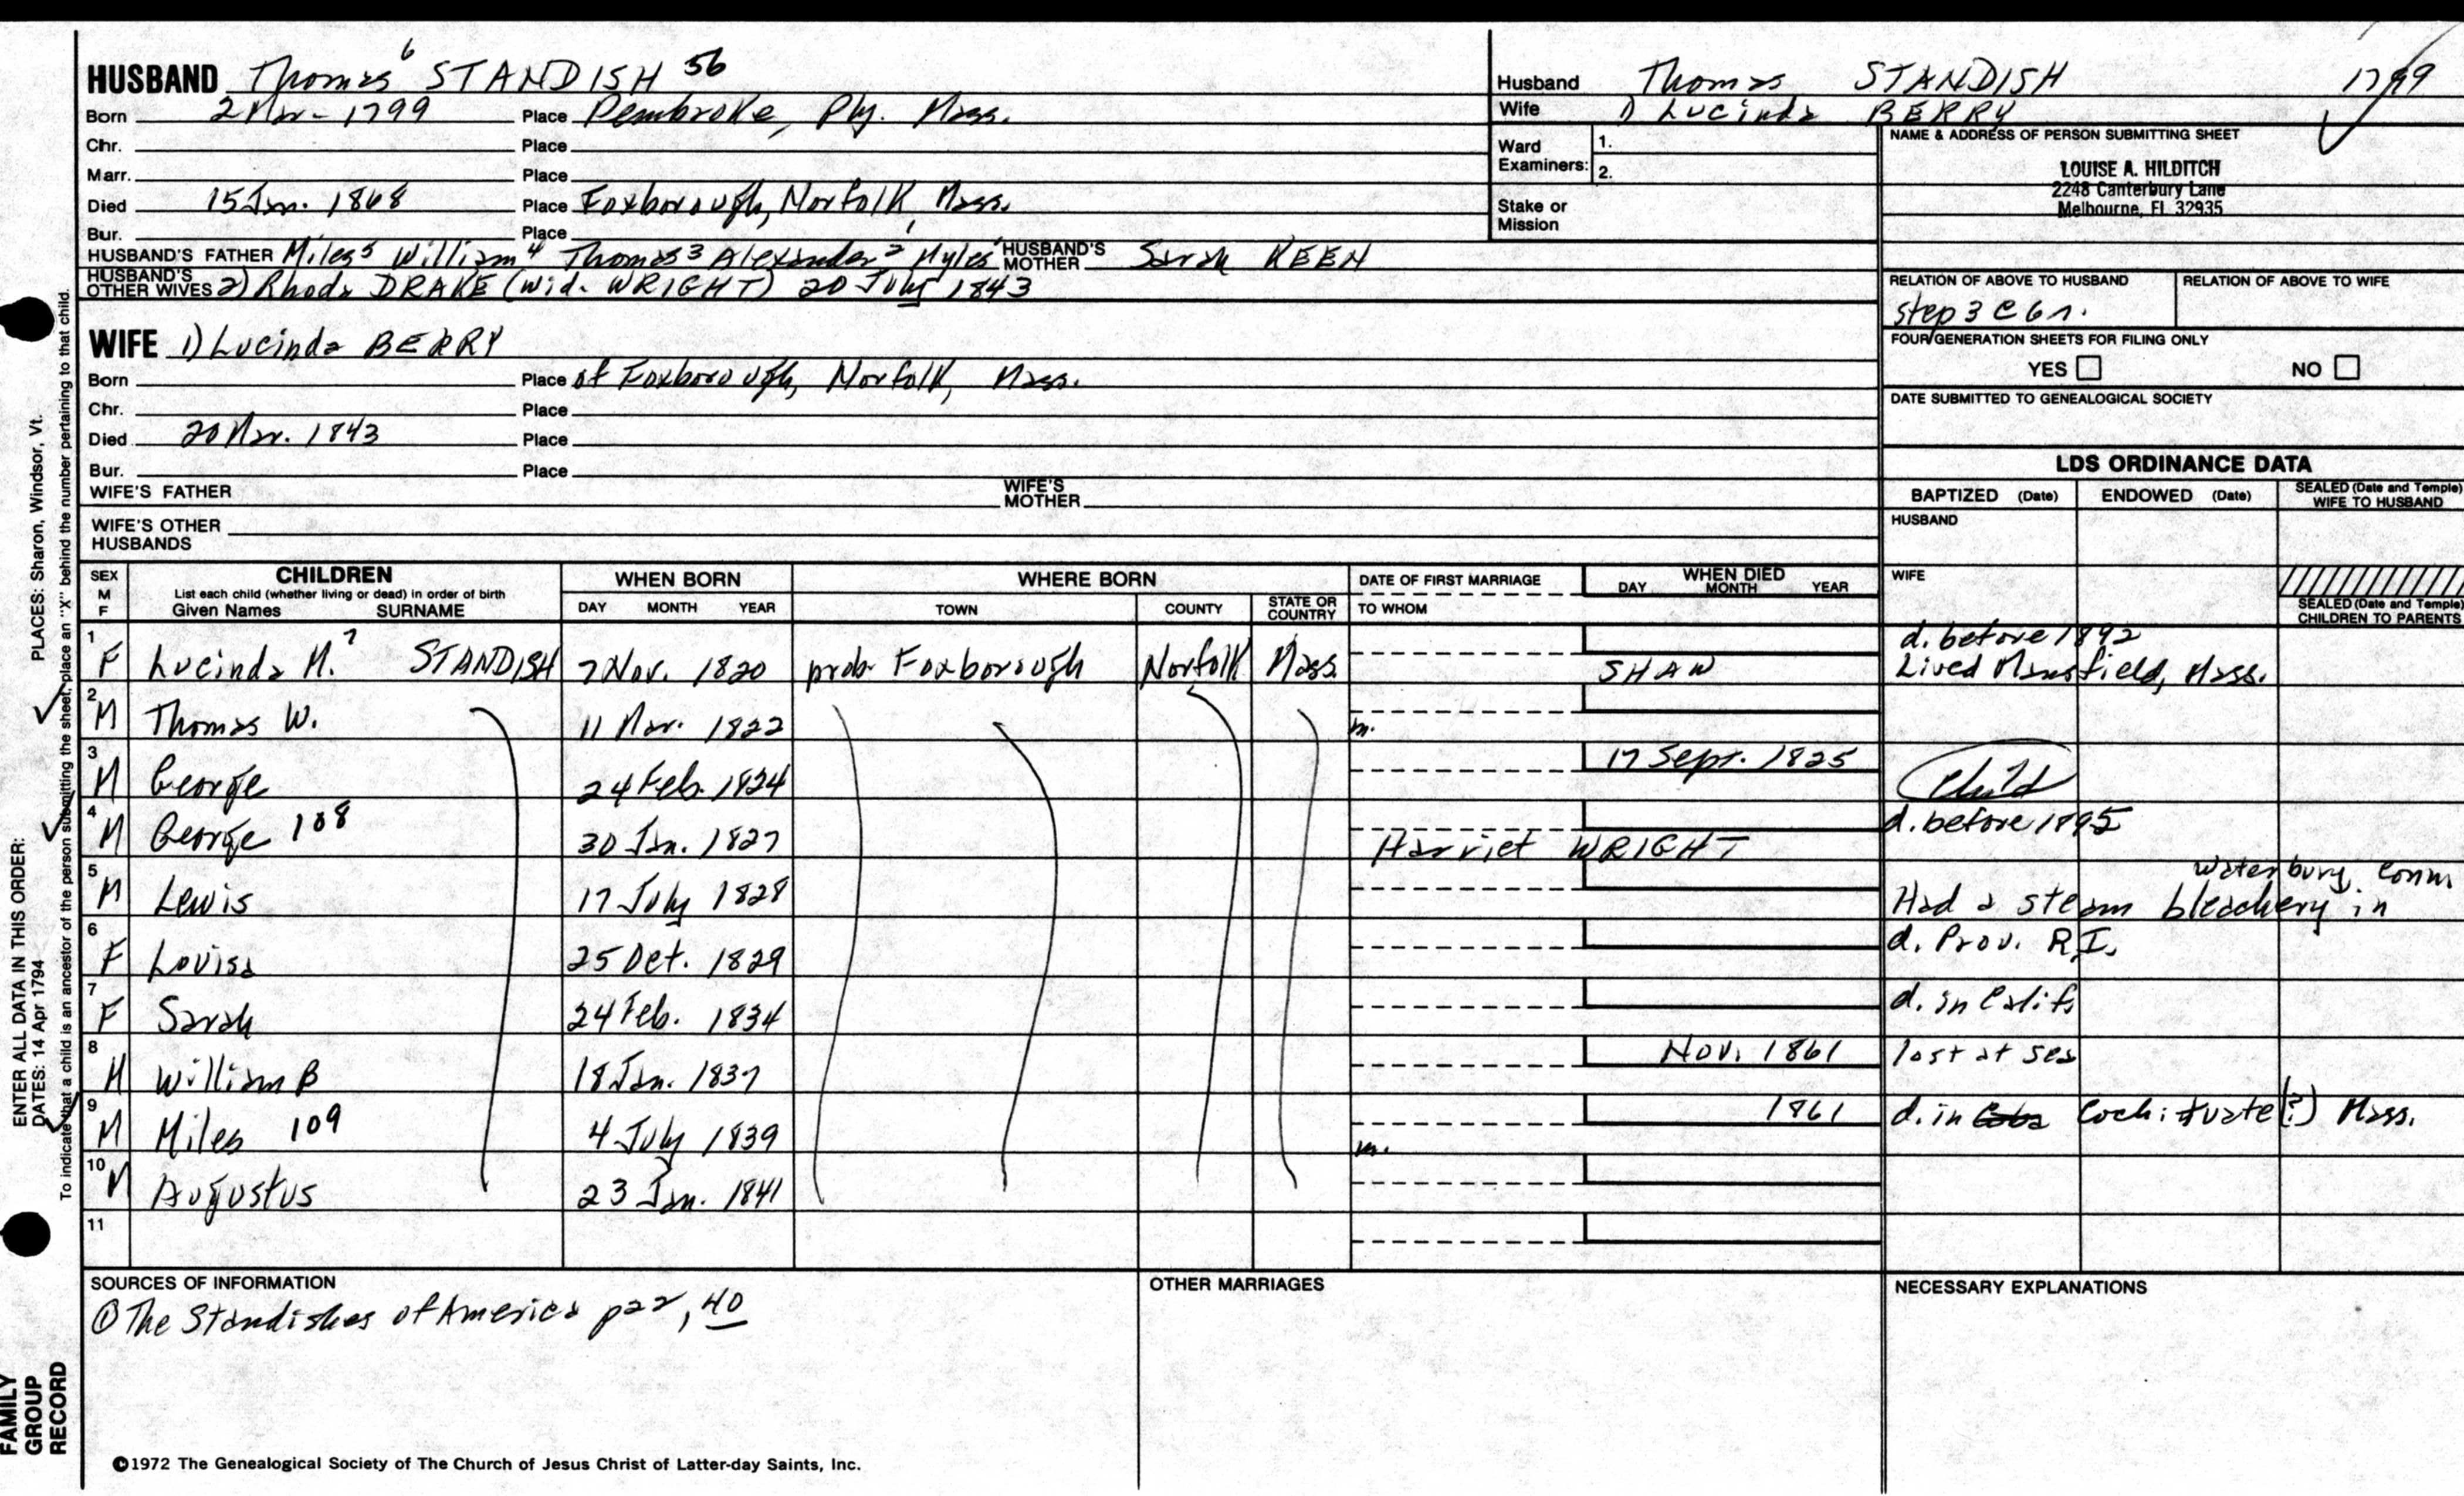 HUSBAND Thomas⁶ STANDISH 56
Born 2 Mar. 1799 Place Pembroke, Ply. Mass.
Chr. Place
Marr. Place
Died 15 Jan. 1868 Place Foxborough, Norfolk, Mass.
Bur. Place
HUSBAND'S FATHER Miles⁵ William⁴ Thomas³ Alexander² Myles¹ HUSBAND'S MOTHER Sarah KEEN
HUSBAND'S OTHER WIVES 2) Rhoda DRAKE (wid. WRIGHT) 20 July 1843
WIFE 1) Lucinda BERRY
Born Place of Foxborough, Norfolk, Mass.
Chr. Place
Died 20 Mar. 1843 Place
Bur. Place
WIFE'S FATHER WIFE'S MOTHER
WIFE'S OTHER HUSBANDS
Husband Thomas STANDISH 1799
Wife 1) Lucinda BERRY
Ward Examiners: 1.
2.
Stake or Mission
NAME & ADDRESS OF PERSON SUBMITTING SHEET
LOUISE A. HILDITCH
2248 Canterbury Lane
Melbourne, Fl. 32935
RELATION OF ABOVE TO HUSBAND RELATION OF ABOVE TO WIFE
step 3 C 6 r.
FOUR GENERATION SHEETS FOR FILING ONLY
YES NO
DATE SUBMITTED TO GENEALOGICAL SOCIETY
LDS ORDINANCE DATA
BAPTIZED (Date) ENDOWED (Date) SEALED (Date and Temple) WIFE TO HUSBAND
HUSBAND
WIFE
SEALED (Date and Temple) CHILDREN TO PARENTS
SEX M F CHILDREN WHEN BORN WHERE BORN DATE OF FIRST MARRIAGE WHEN DIED
List each child (whether living or dead) in order of birth
Given Names SURNAME DAY MONTH YEAR TOWN COUNTY STATE OR COUNTRY TO WHOM DAY MONTH YEAR
1 F Lucinda M.⁷ STANDISH 7 Nov. 1820 prob. Foxborough Norfolk Mass. SHAW d. before 1892
Lived Mansfield, Mass.
2 M Thomas W. 11 Mar. 1822 m.
3 M George 24 Feb. 1824 17 Sept. 1825 Child
4 M George 108 30 Jan. 1827 Harriet WRIGHT d. before 1895
5 M Lewis 17 July 1828 Had a steam bleachery in Waterbury, Conn
6 F Louisa 25 Oct. 1829 d. Prov. R.I.
7 F Sarah 24 Feb. 1834 d. in Calif.
8 M William B 18 Jan. 1837 Nov. 1861 lost at sea
9 M Miles 109 4 July 1839 m. 1861 d. in Cuba Cochituate (?) Mass.
10 M Augustus 23 Jan. 1841
11
SOURCES OF INFORMATION
① The Standishes of America p 22, 40
OTHER MARRIAGES
NECESSARY EXPLANATIONS
©1972 The Genealogical Society of The Church of Jesus Christ of Latter-day Saints, Inc.
FAMILY GROUP RECORD
ENTER ALL DATA IN THIS ORDER:
DATES: 14 Apr 1794 PLACES: Sharon, Windsor, Vt.
To indicate that a child is an ancestor of the person submitting the sheet, place an "X" behind the number pertaining to that child.